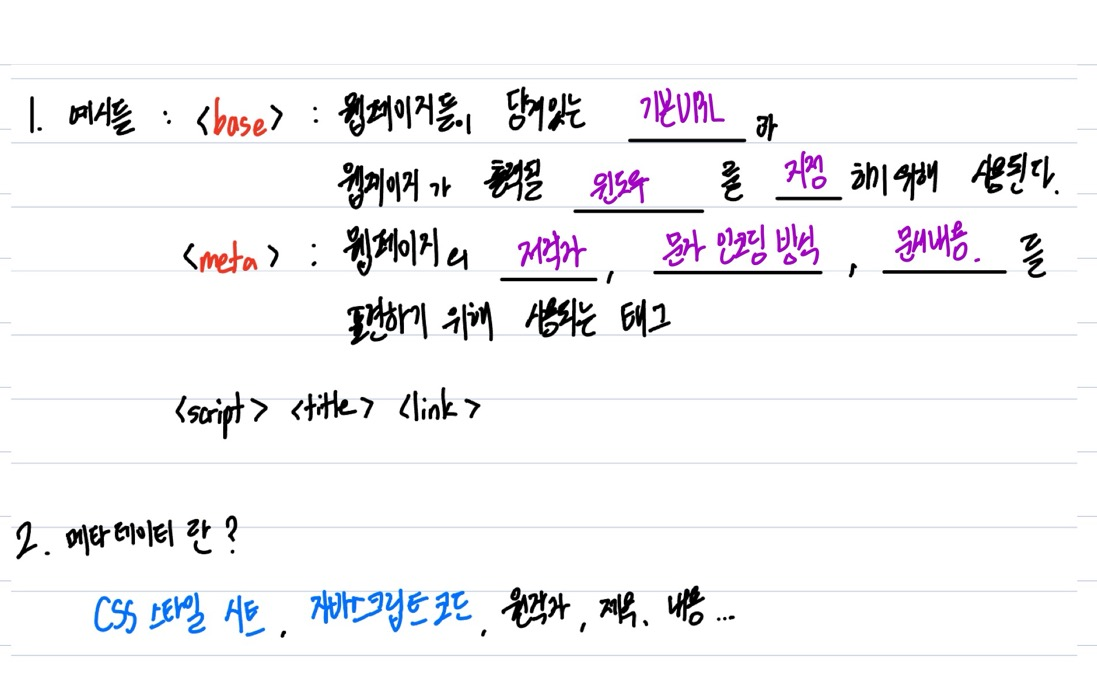 1. 예시들 : <base> : 웹페이지들이 담겨있는 기본URL 과
웹페이지가 출력될 윈도우 를 지정 하기 위해 사용된다.
<meta> : 웹페이지의 저작자, 문자 인코딩 방식, 문서내용. 를
표현하기 위해 사용되는 태그
<script> <title> <link>
2. 메타 데이터 란?
CSS 스타일 시트, 자바스크립트 코드, 원작자, 제목, 내용...